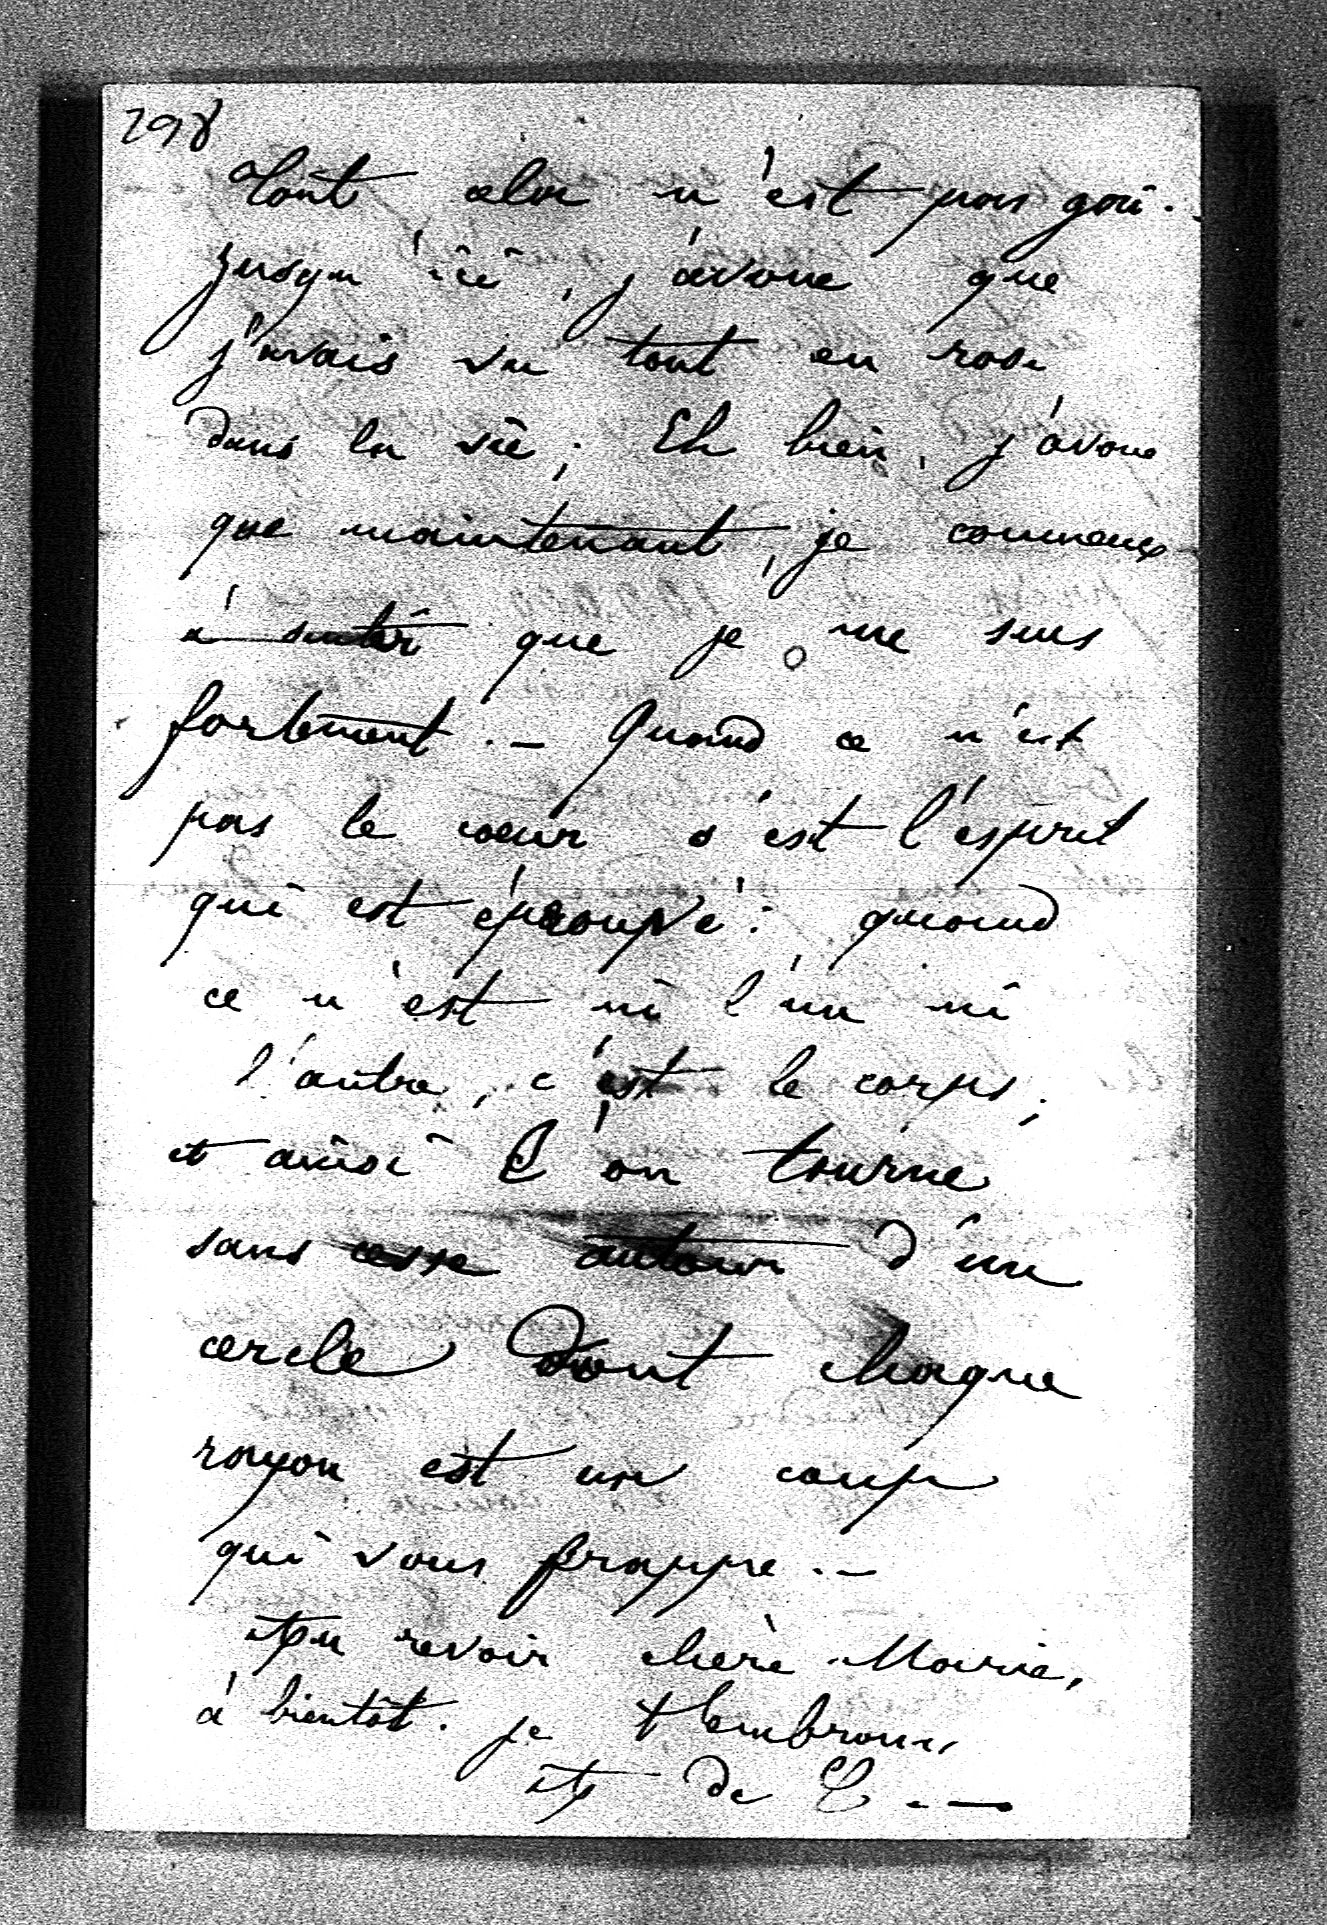 298
Tout cela n'est pas gai.
Jusqu'ici, j'avoue que
j'avais vu tout en rose
dans la vie; Eh bien, j'avoue
que maintenant, je commence
à sentir que je me suis
fortement. — Quand ce n'est
pas le coeur c'est l'esprit
qui est éprouvé: quand
ce n'est ni l'un ni
l'autre, c'est le corps;
et ainsi l'on tourne
sans cesse autour d'un
cercle dont chaque
rayon est un coup
qui vous frappe. —
Au revoir chère Marie,
à bientôt. je t'embrasse
de